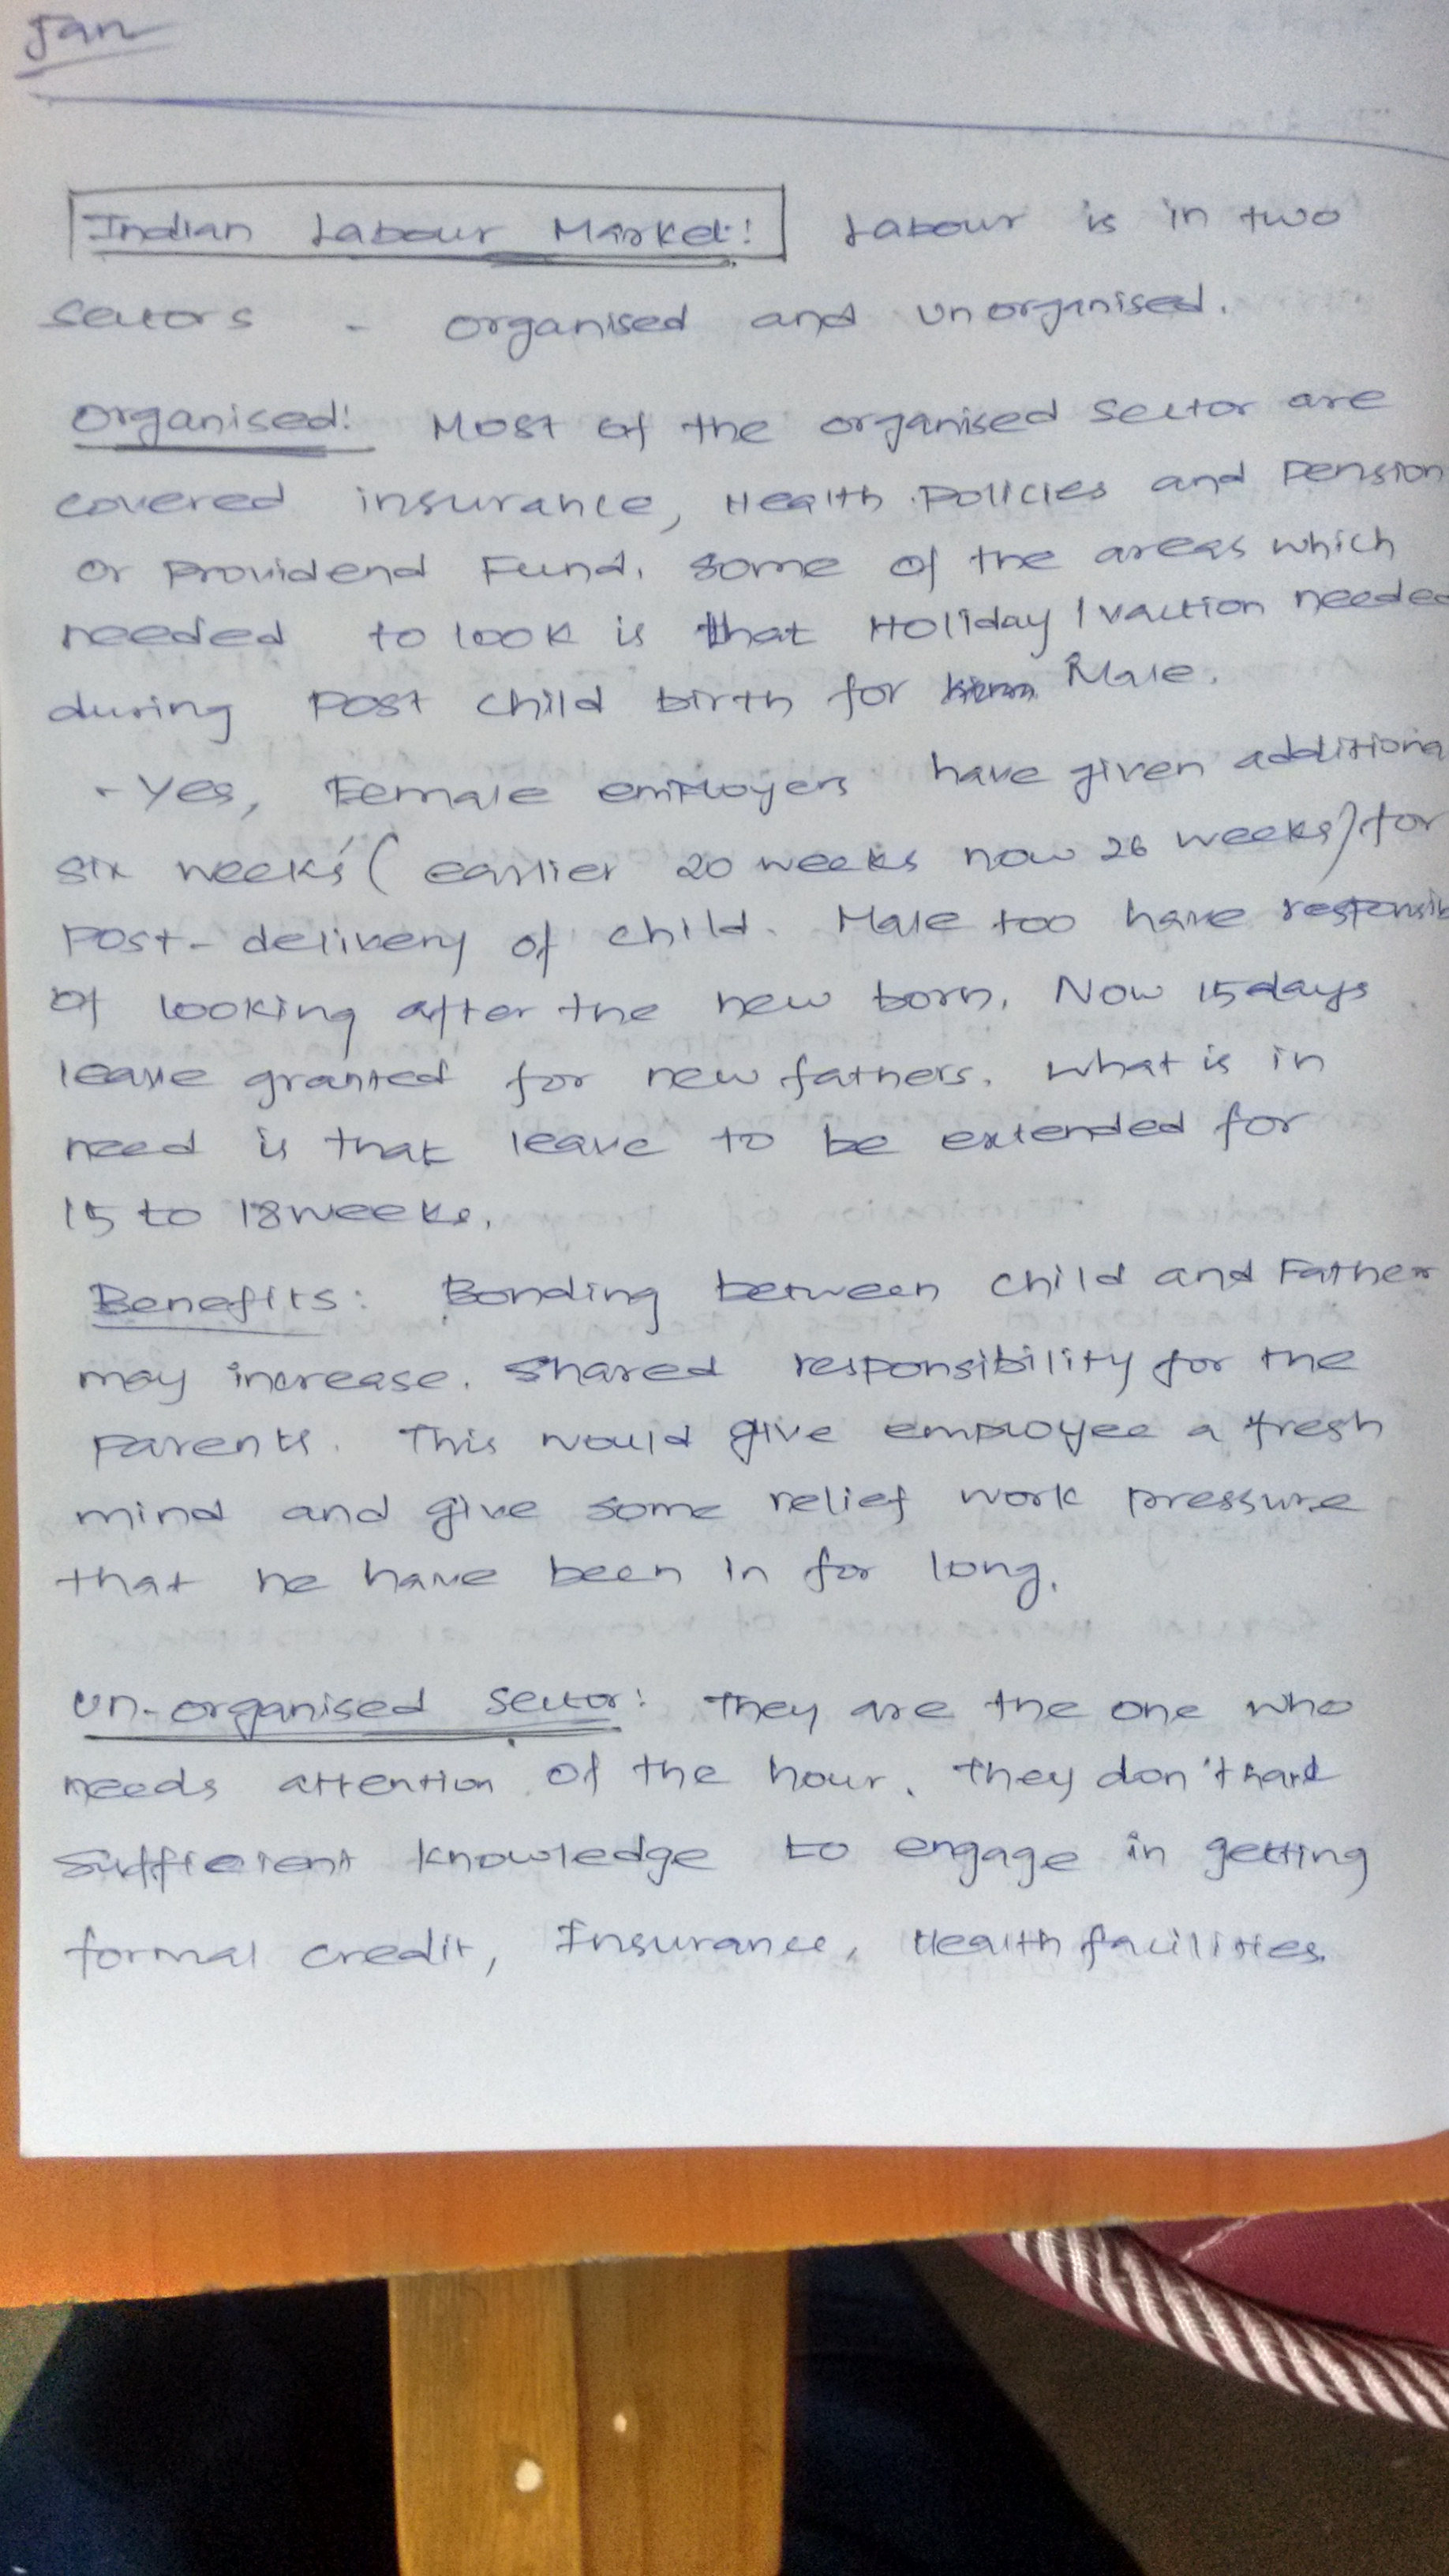 Jan
Indian Labour Market: Labour is in two
sectors - organised and unorganised.
Organised: Most of the organised sector are
covered insurance, Health Policies and Pension
or Providend Fund. Some of the areas which
needed to look is that Holiday / vaction needed
during Post child birth for Male.
- Yes, Female employers have given additiona
six weeks (earlier 20 weeks now 26 weeks) for
Post-delivery of child. Male too have responsib
of looking after the new born. Now 15 days
leave granted for new fathers. What is in
need is that leave to be extended for
15 to 18 weeks.
Benefits: Bonding between child and Father
may increase. Shared responsibility for the
parents. This would give employee a fresh
mind and give some relief work pressure
that he have been in for long.
Un-organised sector: They are the one who
needs attention of the hour. They don't
sufficient knowledge to engage in getting
formal credit, Insurance, Health facilities.